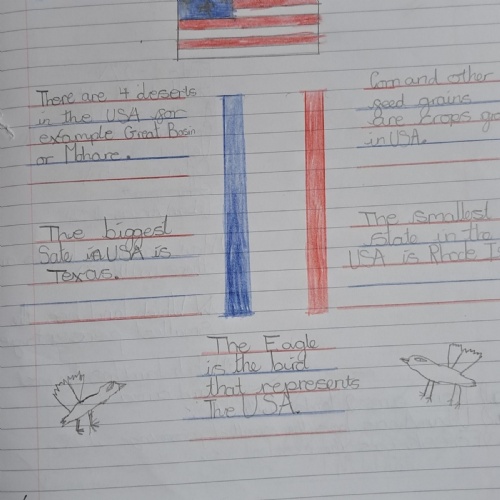 There are 4 deserts
in the USA for
example Great Basin
or Mohave.
Corn and other
seed grains
are crops gro
in USA.
The biggest
Sate in USA is
Texas.
The smallest
state in the
USA is Rhode Is
The Eagle
is the buid
that represents
The USA.